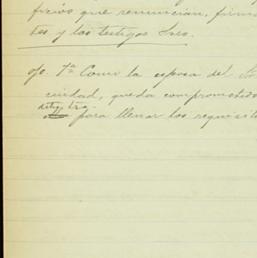 ficios que renuncian, firm
tes y los testigos Sres.
1ª Como la esposa del
ciudad, queda comprometido
para llenar los requisit